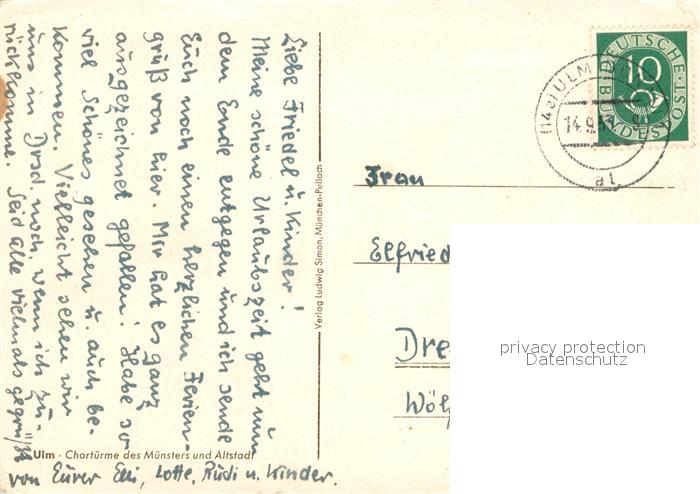 Liebe Friedel u. Kinder!
Meine schöne Urlaubszeit geht nun
dem Ende entgegen und ich sende
Euch noch einen herzlichen Ferien-
gruß von hier. Mir hat es ganz
ausgezeichnet gefallen! Habe so
viel Schönes gesehen u. auch be-
kommen. Vielleicht sehen wir
uns in Drsd. noch, wenn ich zu-
rückkomme. Seid alle vielmals gegrüßt
von Eurer Elli, Lotte, Rudi u. Kinder.
Ulm · Chortürme des Münsters und Altstadt
Verlag Ludwig Simon, München-Pullach
DEUTSCHE
BUNDESPOST
10
(14a) ULM
14.9.
a1
Frau
Elfried
Dre
Wöl
privacy protection
Datenschutz